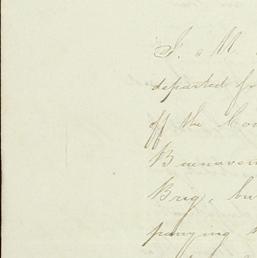 departed f
off the Co
Buenaven
Brig, bu
panying